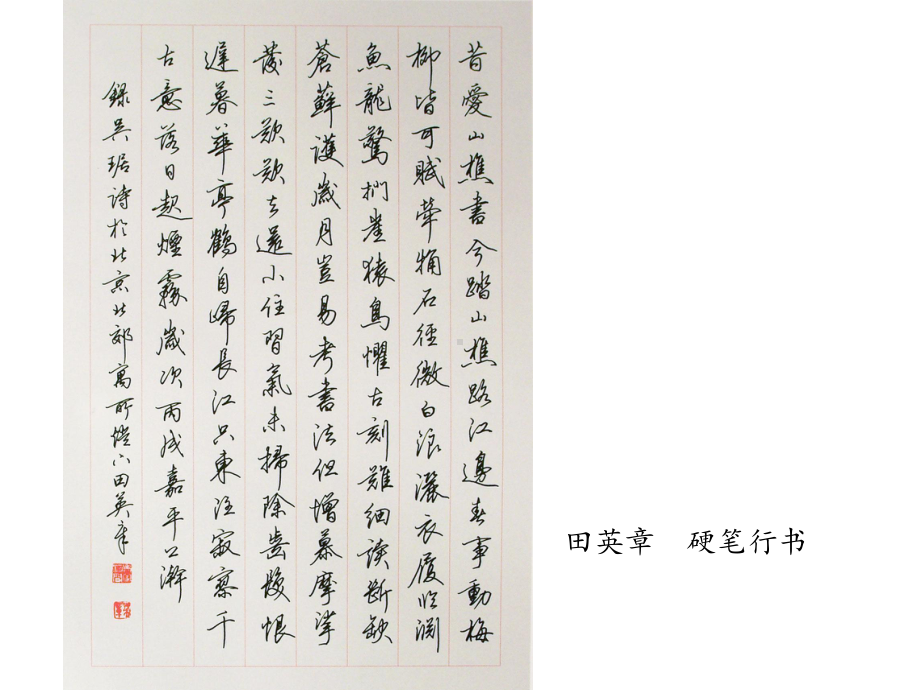 昔愛山樵書今踏山樵路江邊春事動梅
柳皆可賦犖确石徑微白浪灑衣履臨淵
魚龍驚捫崖猿鳥懼古刻難細讀斷缺
蒼蘚護歲月豈易考書法但增慕摩挲
發三歎欲去還小住習氣未掃除齒髮恨
遲暮華亭鶴自歸長江只東注寂寥千
古意落日起煙霧歲次丙戌嘉平上澣
錄吳琚詩於北京北郊寓所燈下田英章
田英章 硬笔行书